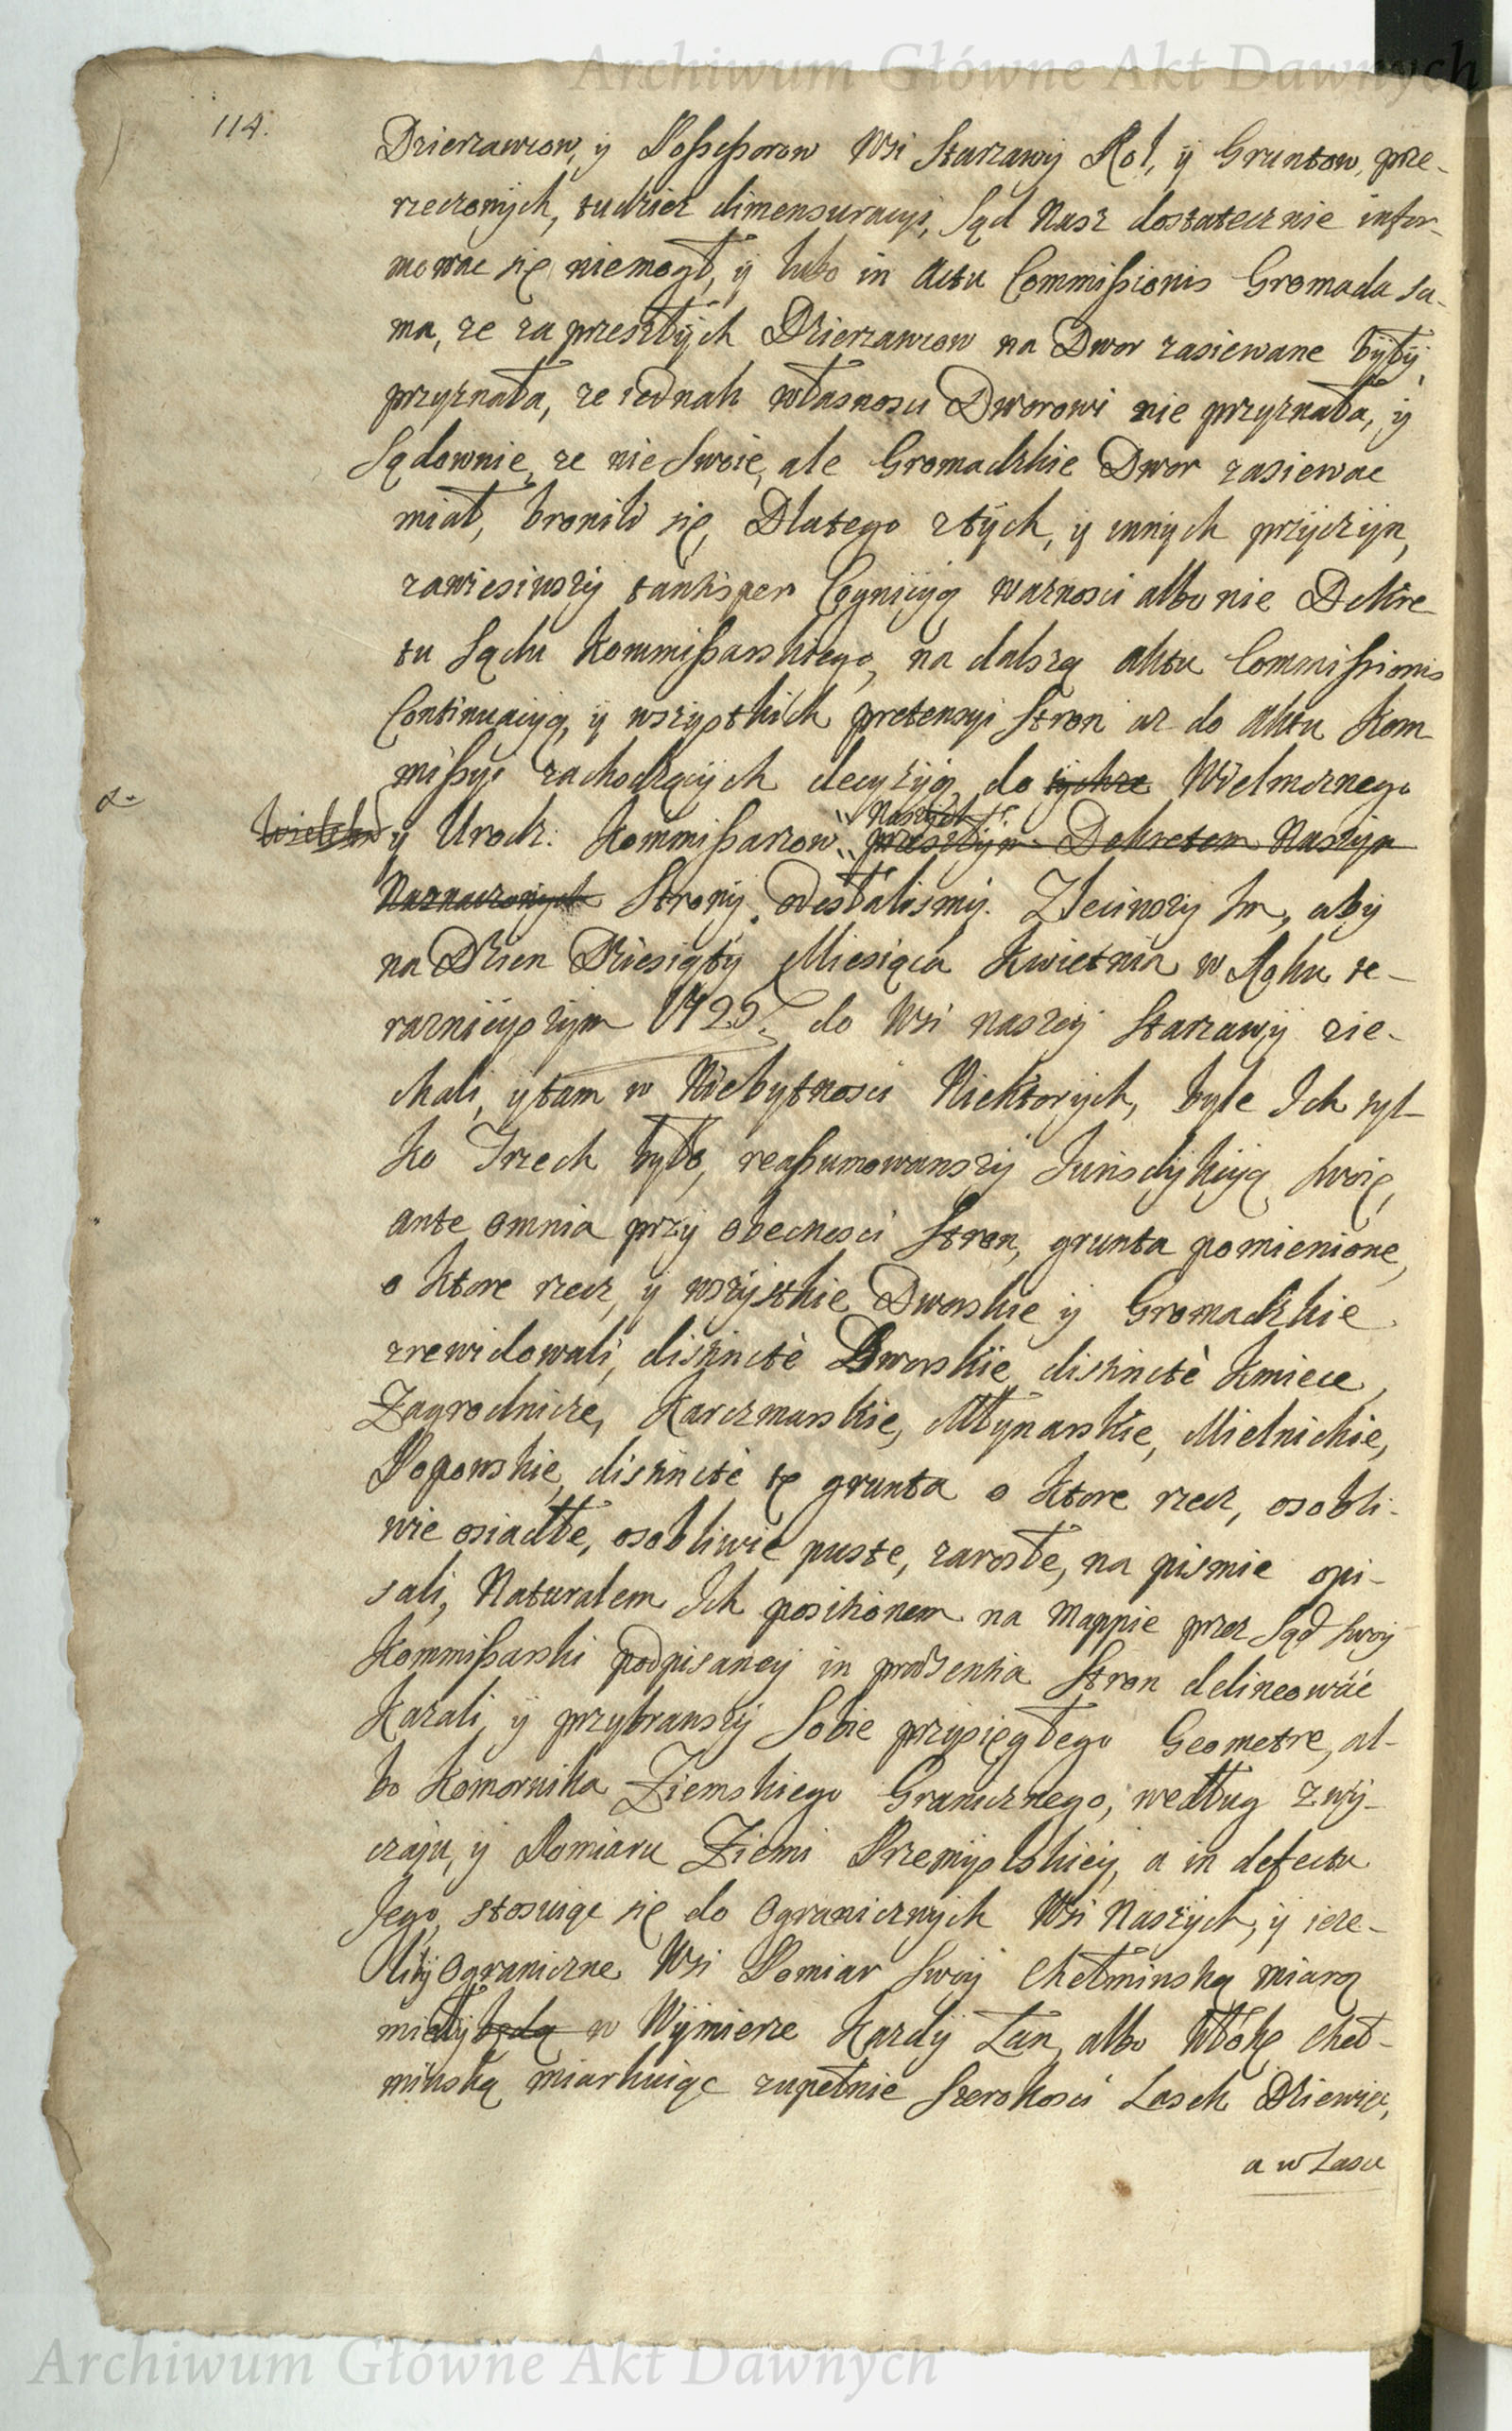 Archiwum Główne Akt Dawnych
114.
Dzierzawcow, ÿ Possessorow Wsi Starzawÿ Rol, ÿ Gruntow, prze-
rzeczonÿch, tudziez dimensuracyi, Sąd Nasz dostatecznie infor-
mowac się niemogł, ÿ lubo in Actu Commissionis Gromada sa-
ma, ze za przeszłÿch Dzierzawcow na Dwor zasiewane bÿłÿ,
przyznała, ze iednak własnosci Dworowi nie przyznała, ÿ
Sądownie, ze nie Swoie, ale Gromadzkie Dwor zasiewac
miał, bronili się, Dlatego ztÿch, ÿ innÿch przÿczÿn,
zawiesiwszÿ tantisper Cognicÿą waznosci albo nie Dekre-
tu Sądu Kommissarskiego, na dalszą Aktu Commissionis
Continuacÿą, ÿ wszystkich pretensyi Stron az do Aktu Kom-
missÿi zachodzącÿch decyzÿą, do tÿchze Wielmoznego
ÿ Urodz: Kommissarzow Naszÿch przeszłÿm Dekretem Naszÿm
Naznaczonÿch Stronÿ odesłalismÿ. Zleciwszÿ Im, abÿ
na Dzien Dziesiątÿ Miesiąca Kwietnia w Roku te-
raznieÿszÿm 1725. do Wsi naszeÿ Starzawÿ zie-
chali, ÿ tam w Niebytnosci Niektorÿch, byle Ich tyl-
ko Trzech było, reassumowawszÿ Jurisdÿkcÿą swoię,
ante omnia przÿ obecnosci Stron, grunta pomienione,
o ktore rzecz, ÿ wszÿstkie Dworskie ÿ Gromadzkie
zrewidowali, distinctè Dworskie, distinctè Kmiece,
Zagrodnicze, Karczmarskie, Młynarskie, Mielnickie,
Popowskie, distinctè te grunta o ktore rzecz, osobli-
wie osiadłe, osobliwie puste, zarosłe, na pismie opi-
sali, Naturalem Ich positionem na Mappie przez Sąd swoÿ
Kommissarski podpisaneÿ in præsentia Stron delineowác
Kazali, ÿ przybrawszÿ Sobie przÿsięgłego Geometrę, al-
bo Komornika Ziemskiego Granicznego, według zwÿ-
czaju, ÿ Pomiaru Ziemi Przemÿslskieÿ, a in defectu
Jego, stosuiąc się do Ogranicznych Wsi Naszÿch, ÿ ieze-
libÿ Ograniczne Wsi Pomiar swoÿ Chełminską miarą
miałÿ będą w Wÿmierze Kazdÿ Łan, albo Włókę Cheł-
minską miarkuiąc zupełnie Szerokosci Lasek Dziewięc,
a w Lasce
Archiwum Główne Akt Dawnych